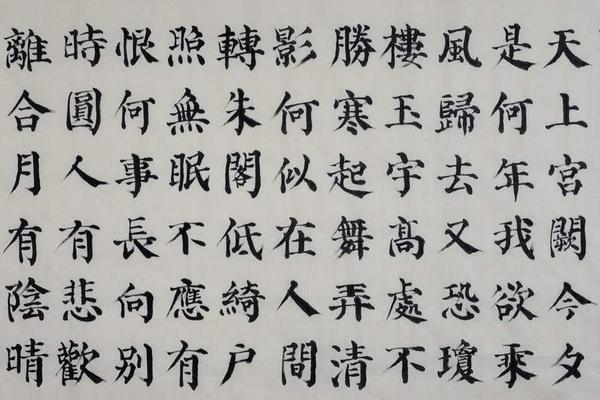 天上宮闕今夕
是何年我欲乘
風歸去又恐瓊
樓玉宇髙處不
勝寒起舞弄清
影何似在人間
轉朱閣低綺戶
照無眠不應有
恨何事長向別
時圓人有悲歡
離合月有陰晴